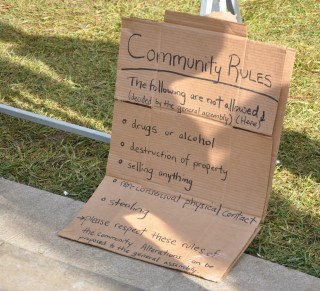 Community Rules
The following are not allowed
(decided by the general assembly) (Here)
• drugs or alcohol
• destruction of property
• selling anything
• non-consensual physical contact
• stealing
please respect these rules of
the community. Alterations can be
proposed to the general assembly